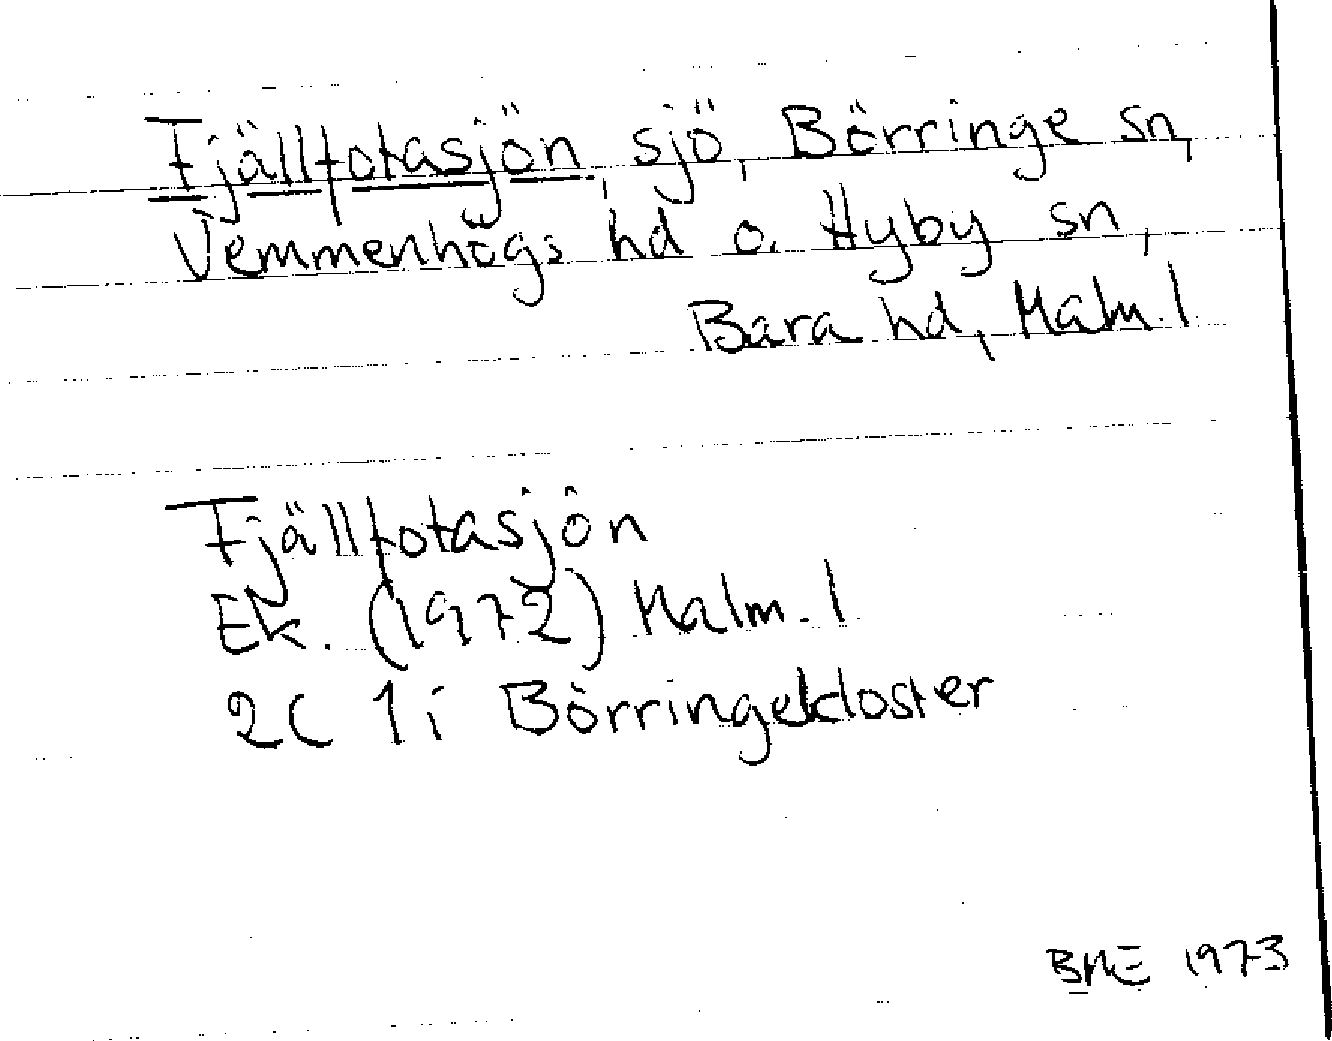 Fjällfotasjön, sjö, Börringe sn,
Vemmenhögs hd o. Hyby sn,
Bara hd, Malm. l.
Fjällfotasjön
Ek. (1972) Malm. l
2C 1i Börringekloster
BME 1973